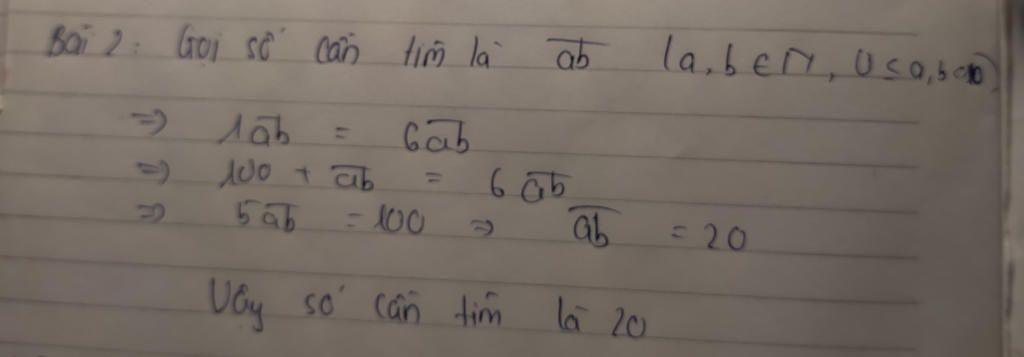 Bài 2: Gọi số cần tìm là ab (a,b ∈ N, 0 ≤ a,b < 10)
=> 1ab = 6ab
=> 100 + ab = 6 ab
=> 5ab = 100 => ab = 20
Vậy số cần tìm là 20